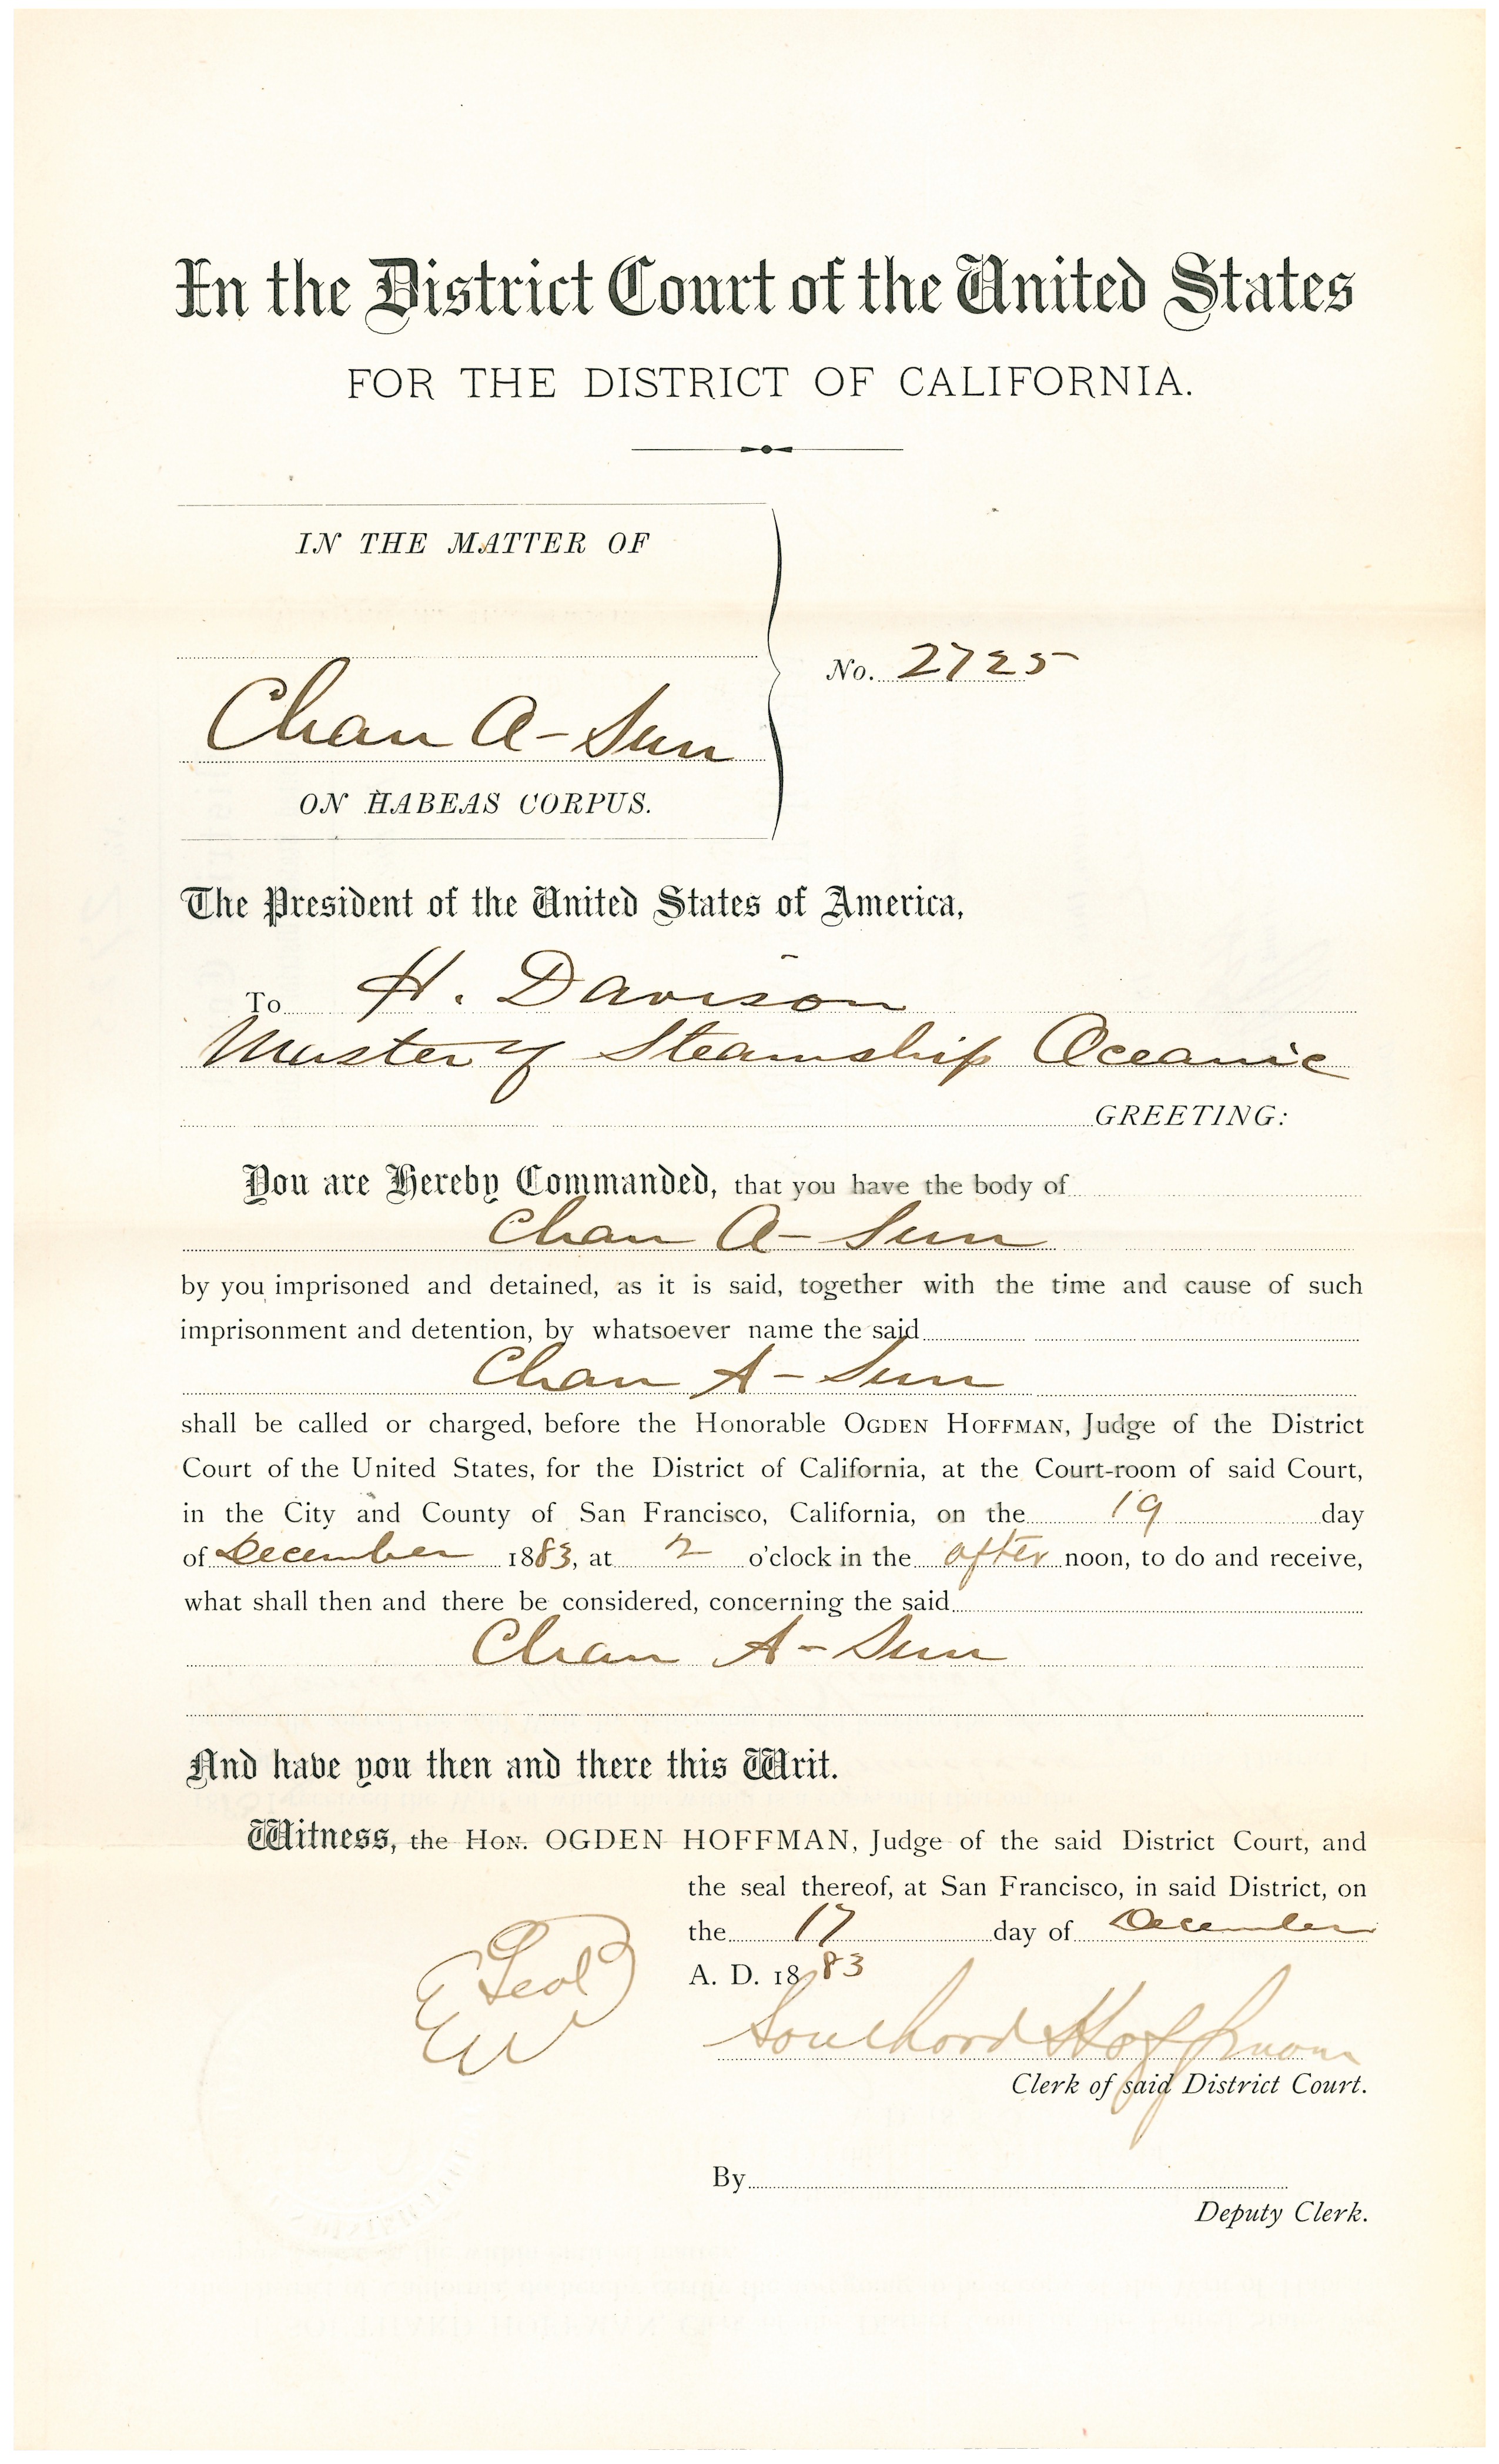 In the District Court of the United States
FOR THE DISTRICT OF CALIFORNIA.
IN THE MATTER OF
No. 2725
Chan A-Sun
ON HABEAS CORPUS.
The President of the United States of America,
To H. Davison
Master of Steamship Oceanic
GREETING:
You are Hereby Commanded, that you have the body of
Chan A-Sun
by you imprisoned and detained, as it is said, together with the time and cause of such
imprisonment and detention, by whatsoever name the said
Chan A-Sun
shall be called or charged, before the Honorable OGDEN HOFFMAN, Judge of the District
Court of the United States, for the District of California, at the Court-room of said Court,
in the City and County of San Francisco, California, on the 19 day
of December 1883, at 2 o'clock in the after noon, to do and receive,
what shall then and there be considered, concerning the said
Chan A-Sun
And have you then and there this Writ.
Witness, the HON. OGDEN HOFFMAN, Judge of the said District Court, and
the seal thereof, at San Francisco, in said District, on
the 17 day of December
A. D. 1883
Seal
Southard Hoffman
Clerk of said District Court.
By
Deputy Clerk.